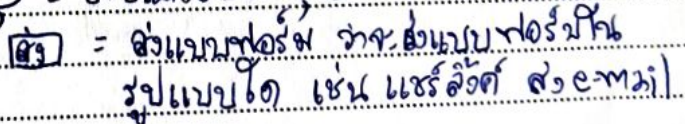 ส่ง = ส่งแบบฟอร์ม ว่าจะส่งแบบฟอร์มใน
รูปแบบใด เช่น แชร์ลิ้งค์ ส่ง e-mail